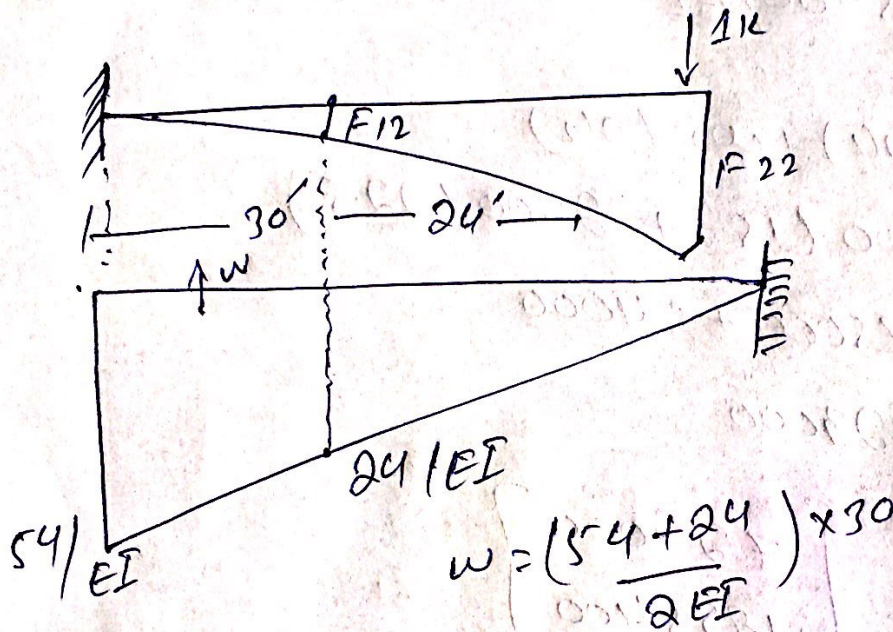 1K
F12
F22
30'
24'
w
24/EI
54/EI
w = (54+24/2EI) × 30